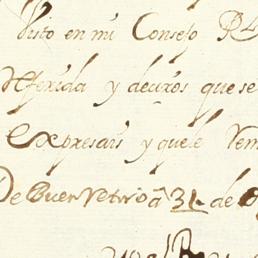 Visto en mi Consejo R4
Referida y deciros que se
Expresais y que le Vem
De Buen Retiro â 31 de